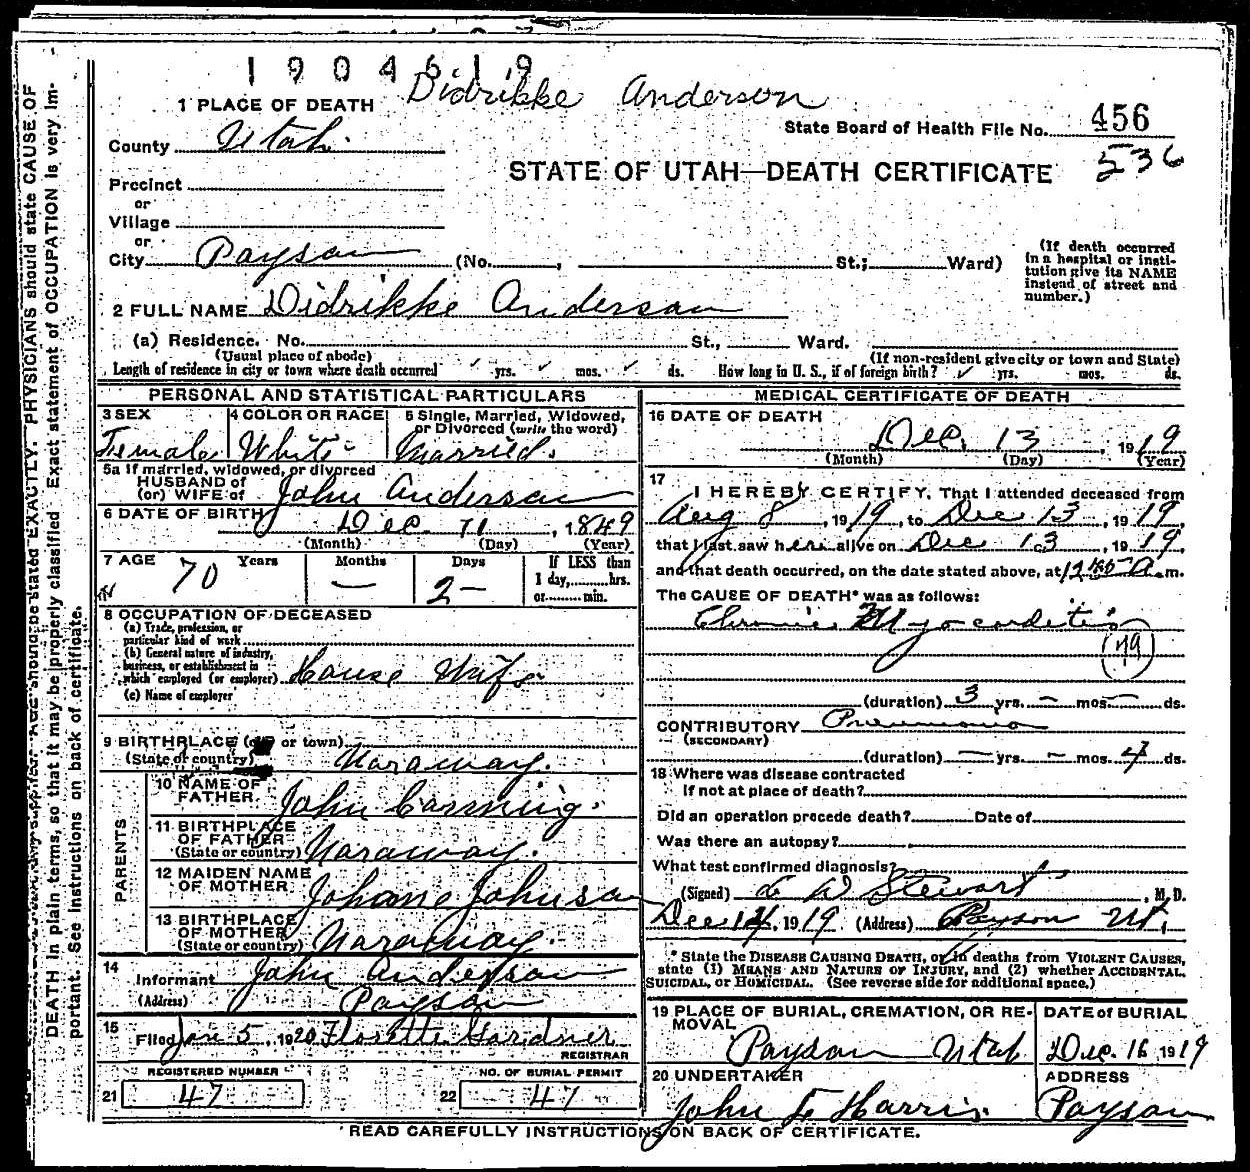 1904619
Didrikke Anderson
1 PLACE OF DEATH
State Board of Health File No. 456
County Utah.
536
STATE OF UTAH—DEATH CERTIFICATE
Precinct
or
Village
or
City Payson (No. , St.; Ward)
(If death occurred in a hospital or institution give its NAME instead of street and number.)
2 FULL NAME Didrikke Anderson
(a) Residence. No. St., Ward.
(Usual place of abode) (If non-resident give city or town and State)
Length of residence in city or town where death occurred yrs. mos. ds. How long in U. S., if of foreign birth? yrs. mos. ds.
PERSONAL AND STATISTICAL PARTICULARS
3 SEX Female
4 COLOR OR RACE White
5 Single, Married, Widowed, or Divorced (write the word) Married.
5a If married, widowed, or divorced
HUSBAND of
(or) WIFE of John Anderson
6 DATE OF BIRTH Dec. 11, 1849
(Month) (Day) (Year)
7 AGE 70 Years — Months 2 — Days
If LESS than 1 day, hrs. or min.
8 OCCUPATION OF DECEASED
(a) Trade, profession, or particular kind of work
(b) General nature of industry, business, or establishment in which employed (or employer) House Wife
(c) Name of employer
9 BIRTHPLACE (or town)
(State or country) Naraway.
PARENTS
10 NAME OF FATHER John
11 BIRTHPLACE OF FATHER (State or country) Naraway.
12 MAIDEN NAME OF MOTHER Johane Johnson
13 BIRTHPLACE OF MOTHER (State or country) Naraway.
14
Informant John Anderson
(Address) Payson
15
Filed Jan 5, 1920 Florette Gardner
REGISTRAR
REGISTERED NUMBER NO. OF BURIAL PERMIT
21 47 22 47
MEDICAL CERTIFICATE OF DEATH
16 DATE OF DEATH
Dec. 13, 1919
(Month) (Day) (Year)
17
I HEREBY CERTIFY, That I attended deceased from
Aug 8, 1919, to Dec 13, 1919,
that I last saw her alive on Dec 13, 1919,
and that death occurred, on the date stated above, at 12 A. m.
The CAUSE OF DEATH* was as follows:
Chronic Myocarditis
(79)
(duration) 3 yrs. — mos. — ds.
CONTRIBUTORY Pneumonia
(SECONDARY)
(duration) — yrs. — mos. 4 ds.
18 Where was disease contracted
If not at place of death?
Did an operation precede death? Date of
Was there an autopsy?
What test confirmed diagnosis?
(Signed) W Stewart, M. D.
Dec 14, 1919 (Address) Payson Ut.
* State the DISEASE CAUSING DEATH, or in deaths from VIOLENT CAUSES,
state (1) MEANS AND NATURE OF INJURY, and (2) whether ACCIDENTAL,
SUICIDAL, or HOMICIDAL. (See reverse side for additional space.)
19 PLACE OF BURIAL, CREMATION, OR REMOVAL Payson Utah
DATE OF BURIAL Dec. 16 1919
20 UNDERTAKER John Harris.
ADDRESS Payson
READ CAREFULLY INSTRUCTIONS ON BACK OF CERTIFICATE.
should be stated EXACTLY. PHYSICIANS should state CAUSE OF
DEATH in plain terms, so that it may be properly classified. Exact statement of OCCUPATION is very important. See instructions on back of certificate.